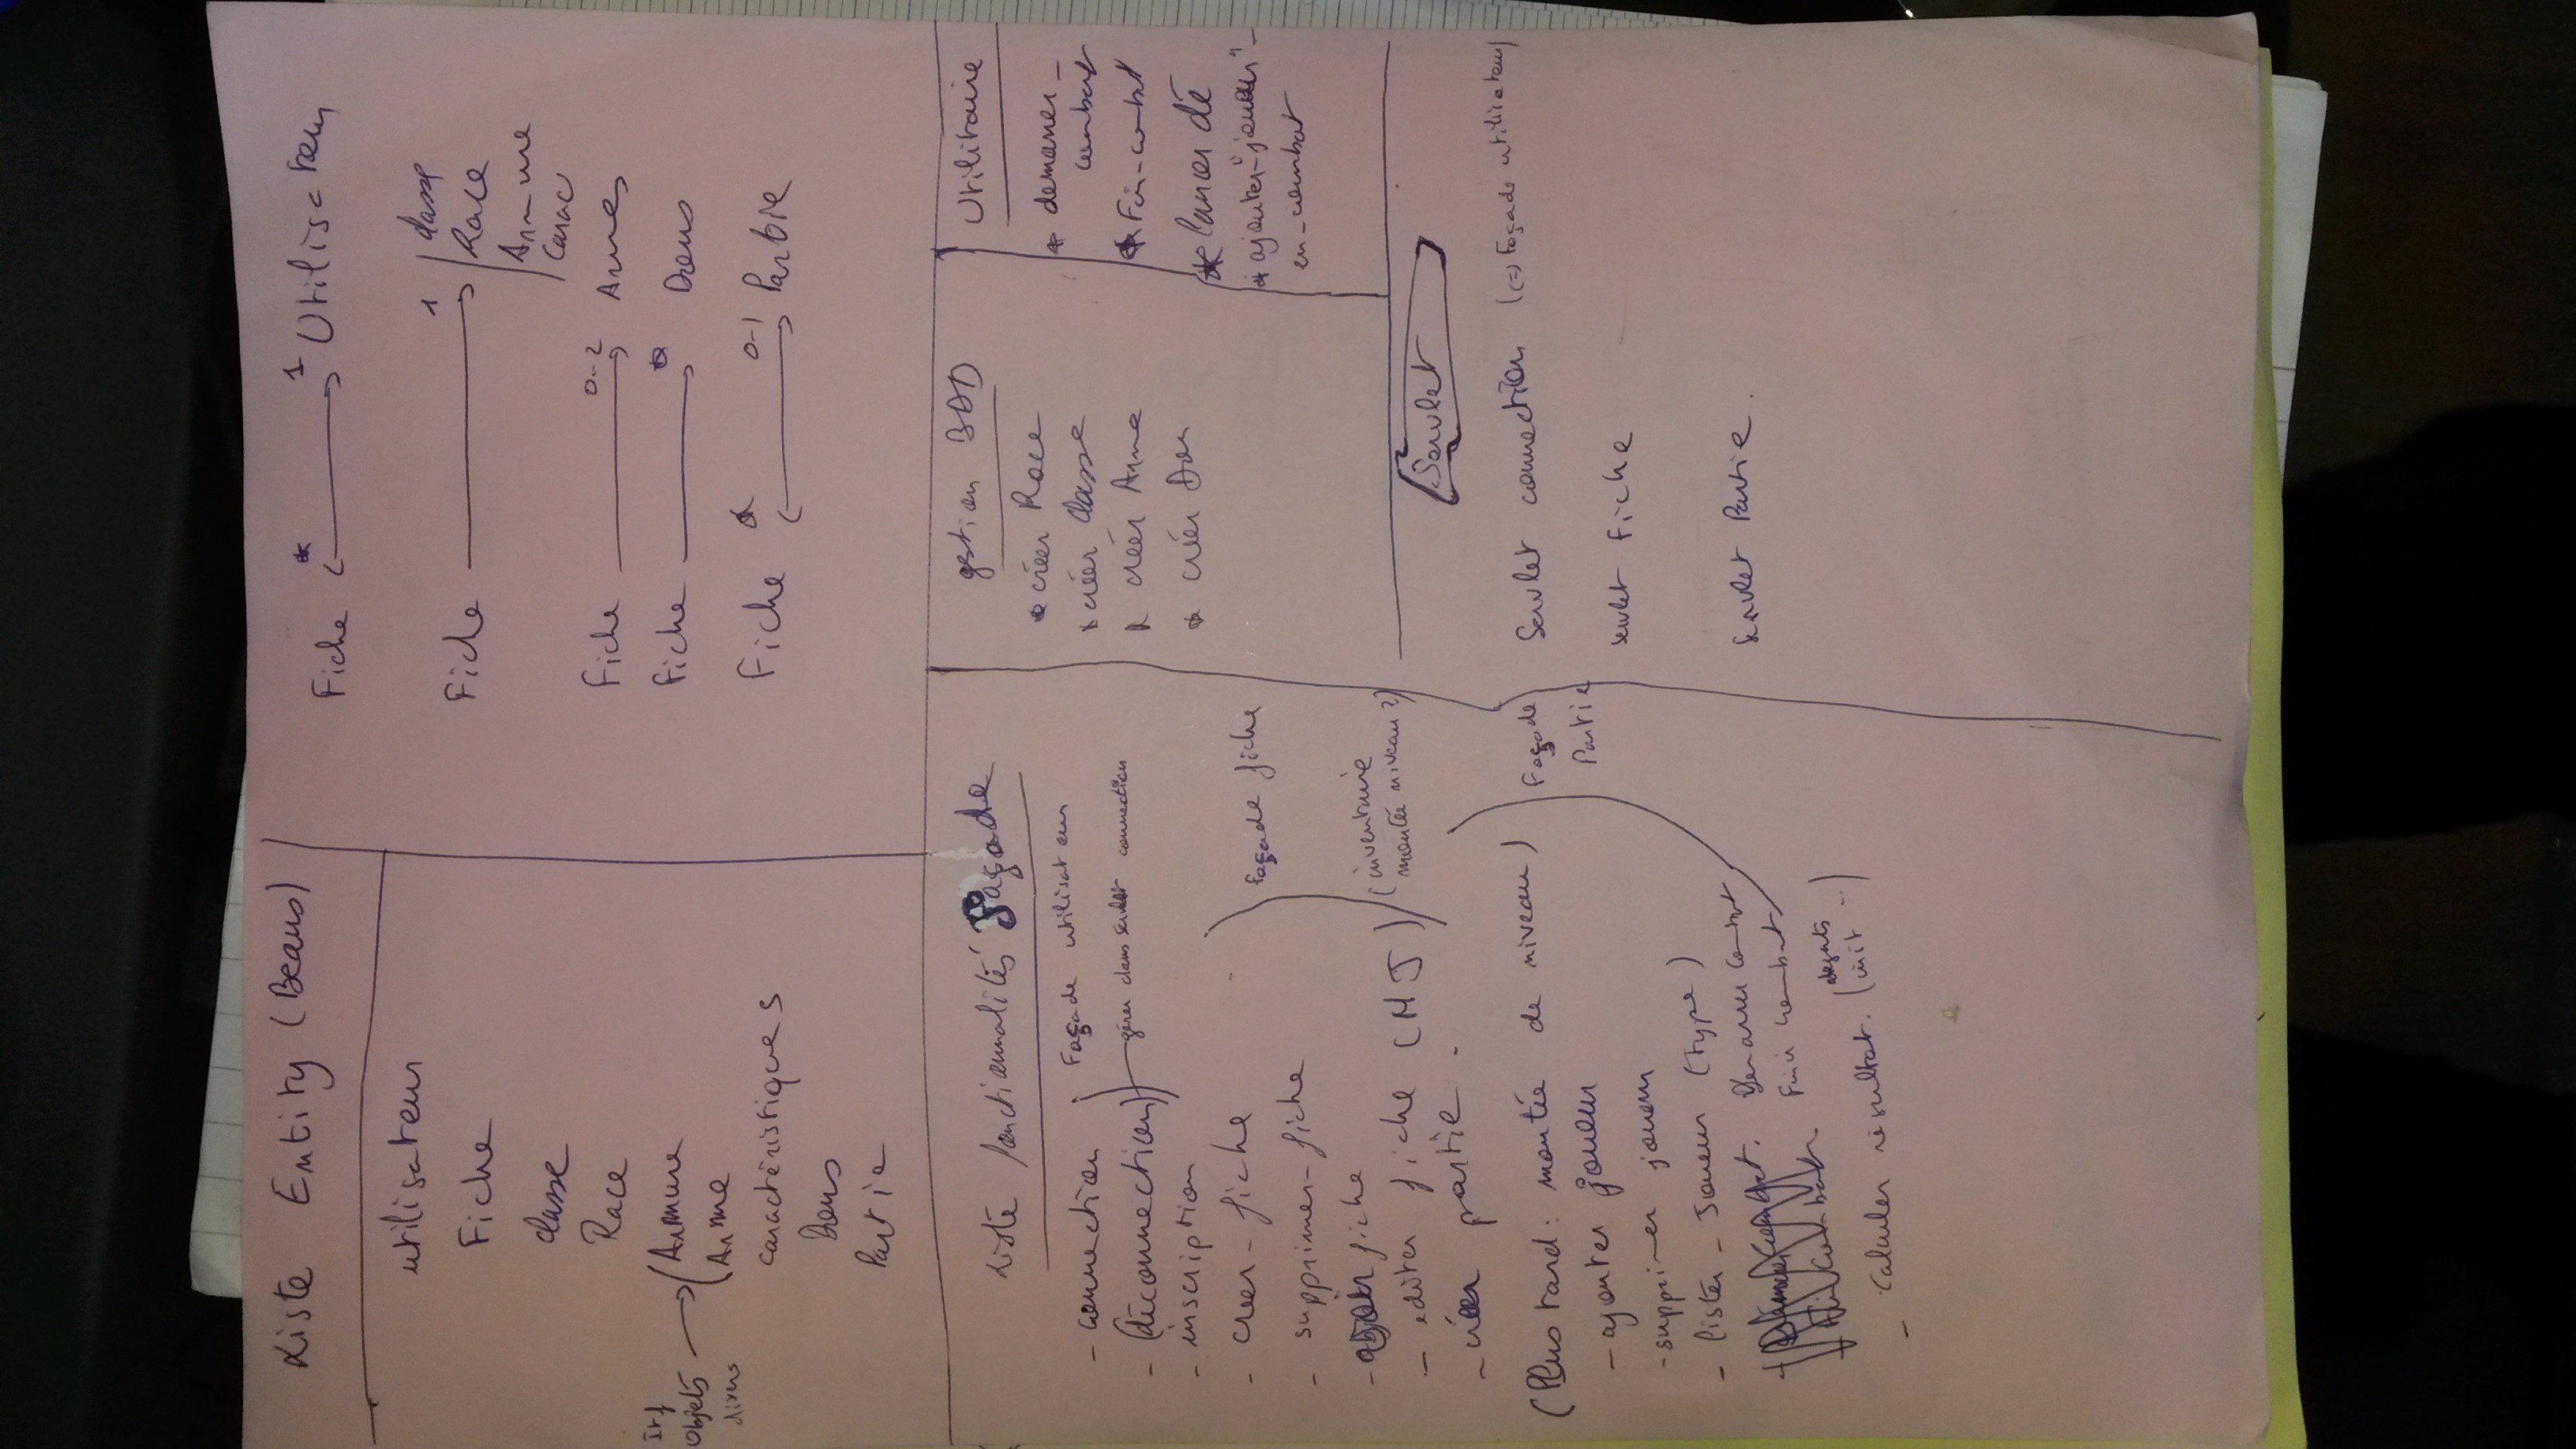 Liste Entity (Beans)
utilisateur
Fiche
classe
Race
Armure
Arme
Objets
divers
caractéristiques
Dons
Partie
Fiche * 1 Utilisateur
Fiche 1 classe
Race
Armure
Carac
Fiche 0-2 Armes
Fiche * Dons
Fiche * 0-1 Partie
Liste fonctionnalités façade
- connection
Façade utilisateur
- (déconnection)
gérer dans servlet connection
- inscription
- creer-fiche
façade fiche
- supprimer-fiche
- fiche
- editer fiche (MJ)
(inventaire
montée niveau?)
- créer partie.
(Plus tard: montée de niveau)
Façade
Partie
- ajouter joueur
- supprimer joueur
- lister-Joueur (type)
Demarrer Combat
Finir combat
- Calculer résultat. (degats
init ..)
gestion BDD
* créer Race
* créer Classe
* créer Arme
* créer Don
Utilitaire
* demarrer-
combat
* Fin-combat
* lancer dé
* ajouter-"joueur"-
en-combat
Servlet
Servlet connection (<=> Façade utilisateur)
servlet Fiche
Servlet Partie.